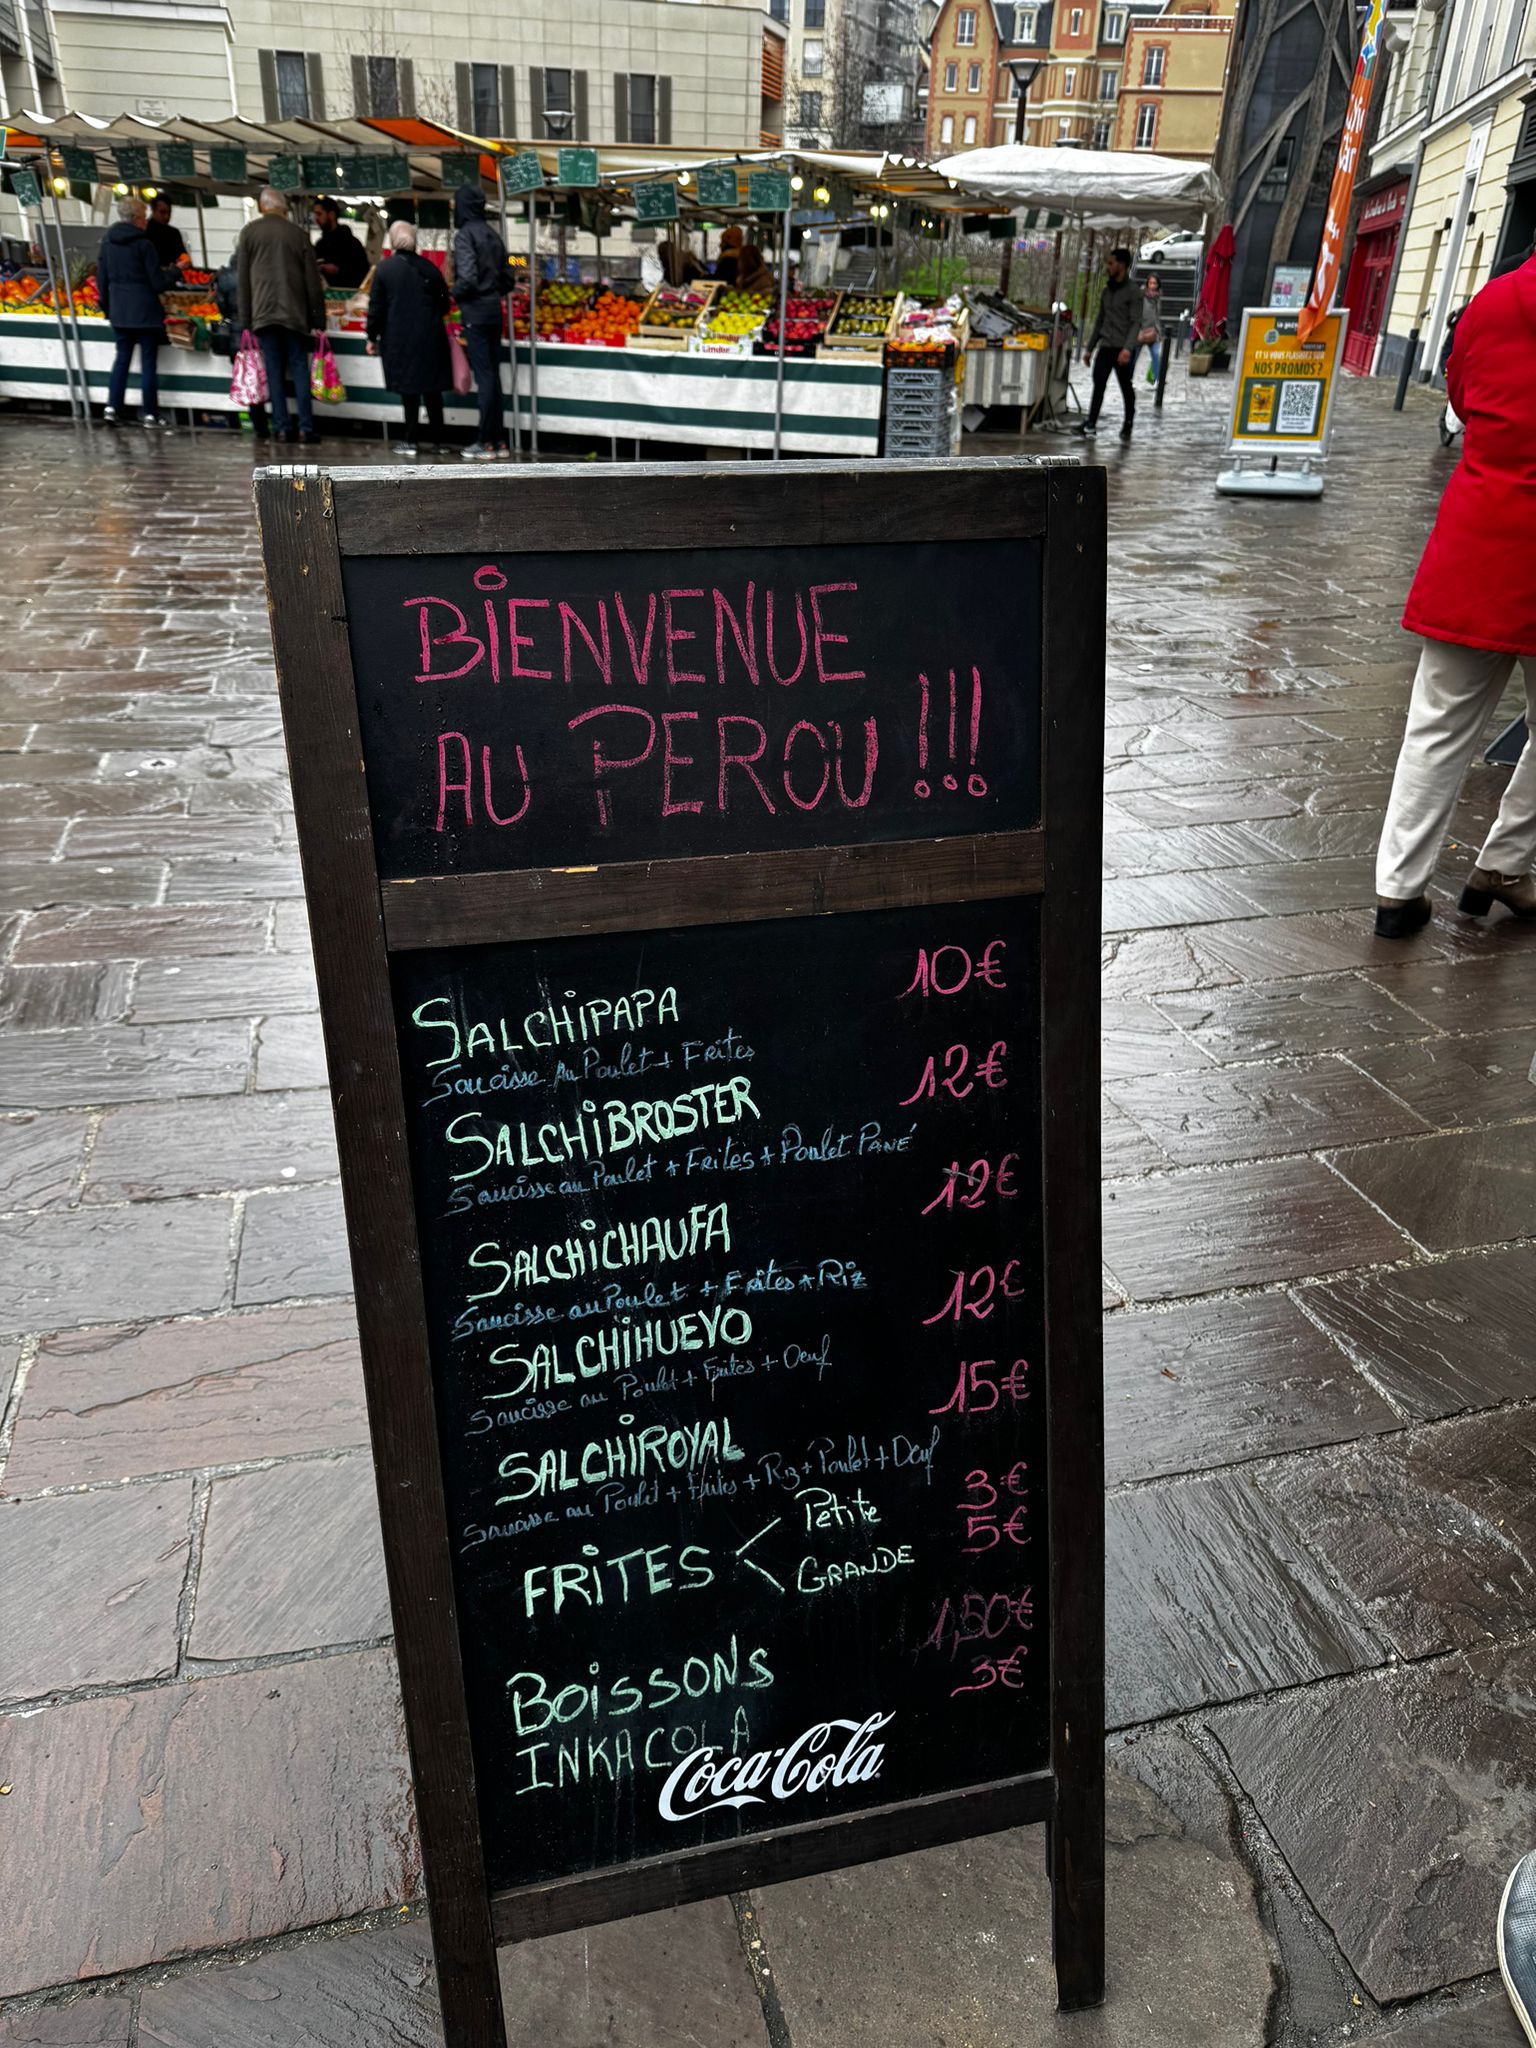 BIENVENUE
AU PEROU !!!
SALCHIPAPA 10€
Saucisse Au Poulet + Frites
SALCHIBROSTER 12€
Saucisse au Poulet + Frites + Poulet PANÉ
SALCHICHAUFA 12€
Saucisse au Poulet + Frites + Riz
SALCHIHUEVO 12€
Saucisse au Poulet + Frites + Oeuf
SALCHIROYAL 15€
Saucisse au Poulet + Frites + Riz + Poulet + Oeuf
FRITES < Petite 3€
GRANDE 5€
BOISSONS 1,50€
INKA COLA 3€
Coca-Cola
ET SI VOUS FLASHIEZ SUR
NOS PROMOS ?